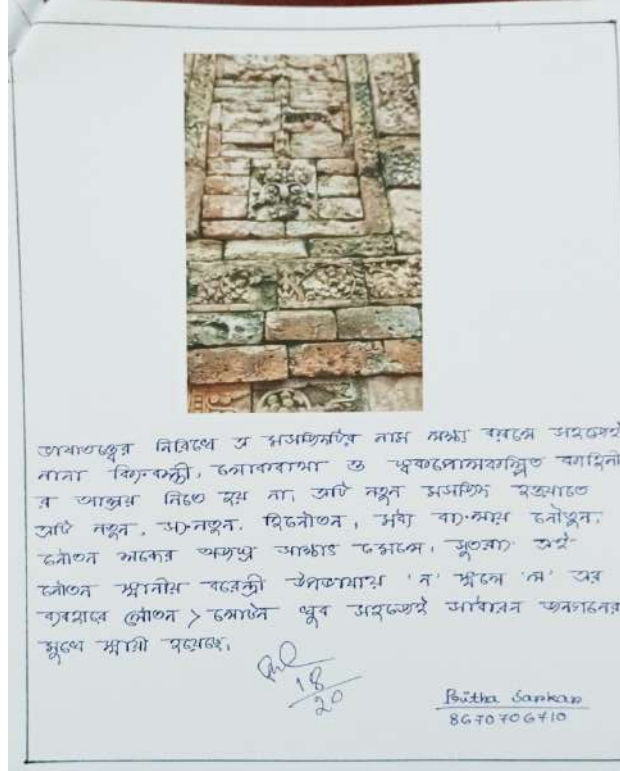 ভাষাতত্ত্বের নিরিখে এ মসজিদটির নাম লক্ষ্য করলে সহজেই
নানা কিংবদন্তী, লোককথা ও স্বকপোলকল্পিত কাহিনী
র আশ্রয় নিতে হয় না, এটি নতুন মসজিদ হওয়াতে
এটি নতুন, সং-নূতন, হি-নৌতন, মধ্য বাংলায় নৌতুন,
নৌতন শব্দের অজস্র সাক্ষ্য মেলে, সুতরাং এই
নৌতন স্থানীয় বরেন্দ্রী উপভাষায় 'ন' স্থলে 'ল' এর
ব্যবহারে নৌতন > লোটন খুব সহজেই সাধারন জনগনের
মুখে স্থায়ী হয়েছে।
18
20
Pritha Sarkar
8670706710